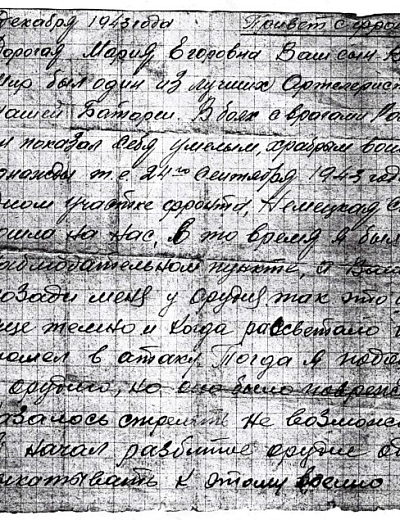 декабря 1943 года Привет с фрон
Дорогая Мария Егоровна Ваш сын В
мир был один из лучших Артелерист
нашей Батареи. В боях с врагами
показал себя умелым, храбрым вои
однажды т.е. 24го Сентября 1943 год
участке фронта, Немецкая
пошла на нас, в то время я был
наблюдательном пункте, а Влад
позади меня у орудия так это
еще темно и когда рассветало
пошел в атаку. Тогда я побе
орудию, но оно было повреж
казалось стрелять не возможн
начал разбитое орудие от
катывать к этому военно